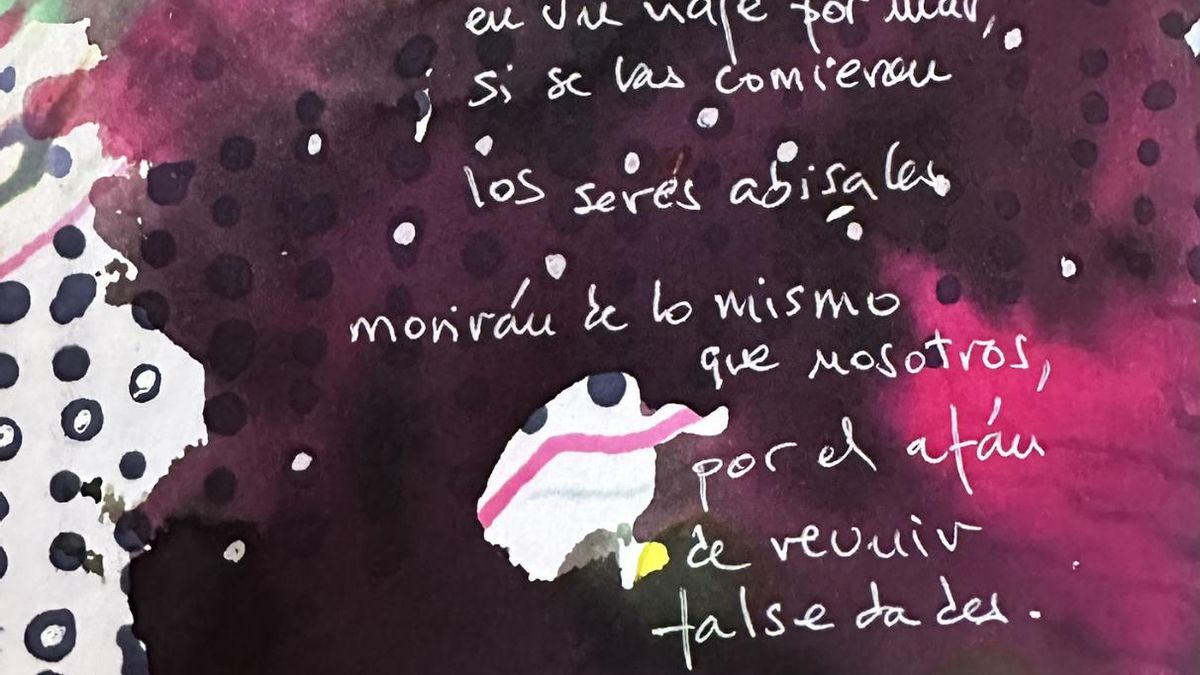 en un viaje por mar,
y si se las comieron
los seres abisales
morirán de lo mismo
que nosotros,
por el afán
de reunir
falsedades.